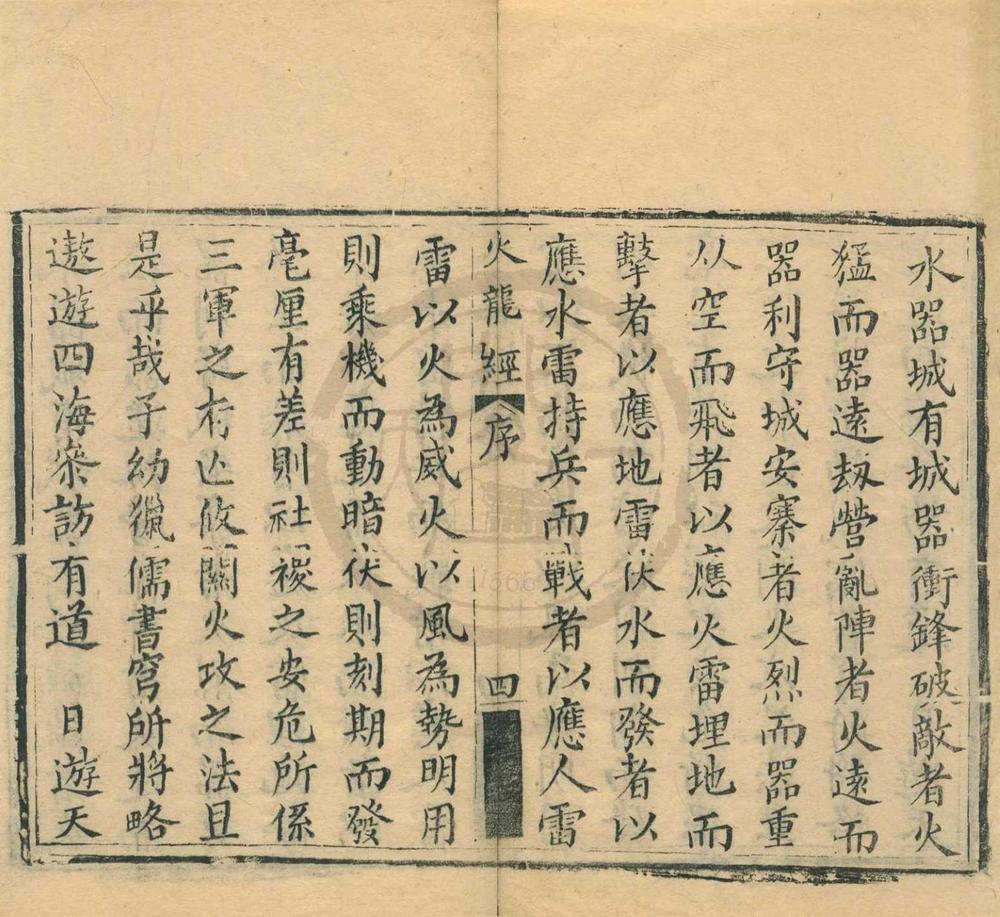 水器城有城器衝鋒破敵者火
猛而器遠刼營亂陣者火遠而
器利守城安寨者火烈而器重
从空而飛者以應火雷埋地而
擊者以應地雷伏水而發者以
應水雷持兵而戰者以應人雷
火龍經 序 四
雷以火為威火以風為勢明用
則乘機而動暗伏則刻期而發
毫厘有差則社稷之安危所係
三軍之存亡攸關火攻之法且
是乎哉子幼獵儒書穹所將略
遨遊四海叅訪有道 日遊天